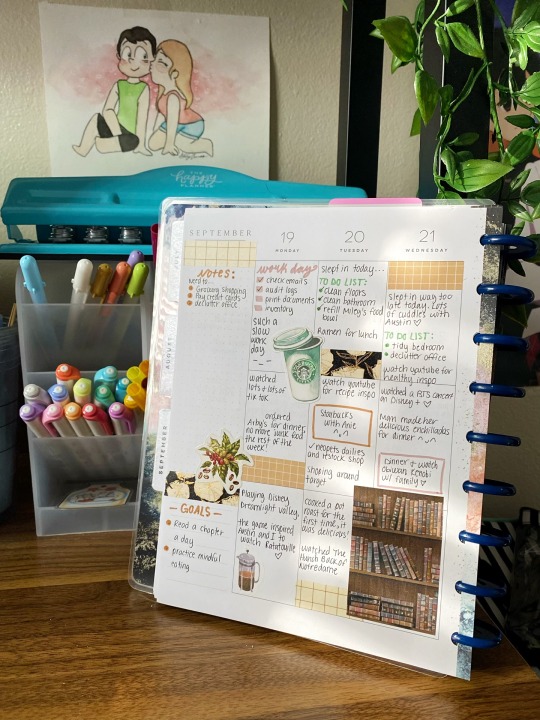 THE
happy
PLANNER
AUGUST
SEPTEMBER
SEPTEMBER
notes:
need to...
Grocery Shopping
Pay credit cards
declutter office
- GOALS -
Read a chapter
a day
practice mindful
eating
19
MONDAY
work day
check emails
audit logs
print documents
inventory
SUCH a
slow
work
day
watched
lots & lots of
tik tok
ordered
Arby's for dinner,
no more junk food
the rest of the
week!
Playing Disney
Dreamlight Valley
the game inspired
and I to
watch Ratatouille
20
TUESDAY
slept in today...
TO DO LIST:
clean floors
clean bathroom
refill Miley's food
bowl
Ramen for lunch
watch youtube
for recipe inspo
Starbucks
with Anie
neopets dailies
and restock shop
shopping around
target
Cooked a pot
roast for the
first time, it
was delicious!
watched The
Hunch Back of
Notredame
21
WEDNESDAY
slept in way too
late today. Lots
of cuddles with
Austin ♡
TO DO LIST:
tidy bedroom
declutter office
watch youtube for
healthy inspo
watched a BTS concert
on Disney+ ♡
Mom made her
delicious enchiladas
for dinner
Dinner & watch
Obiwan Kenobi
w/ family ♡